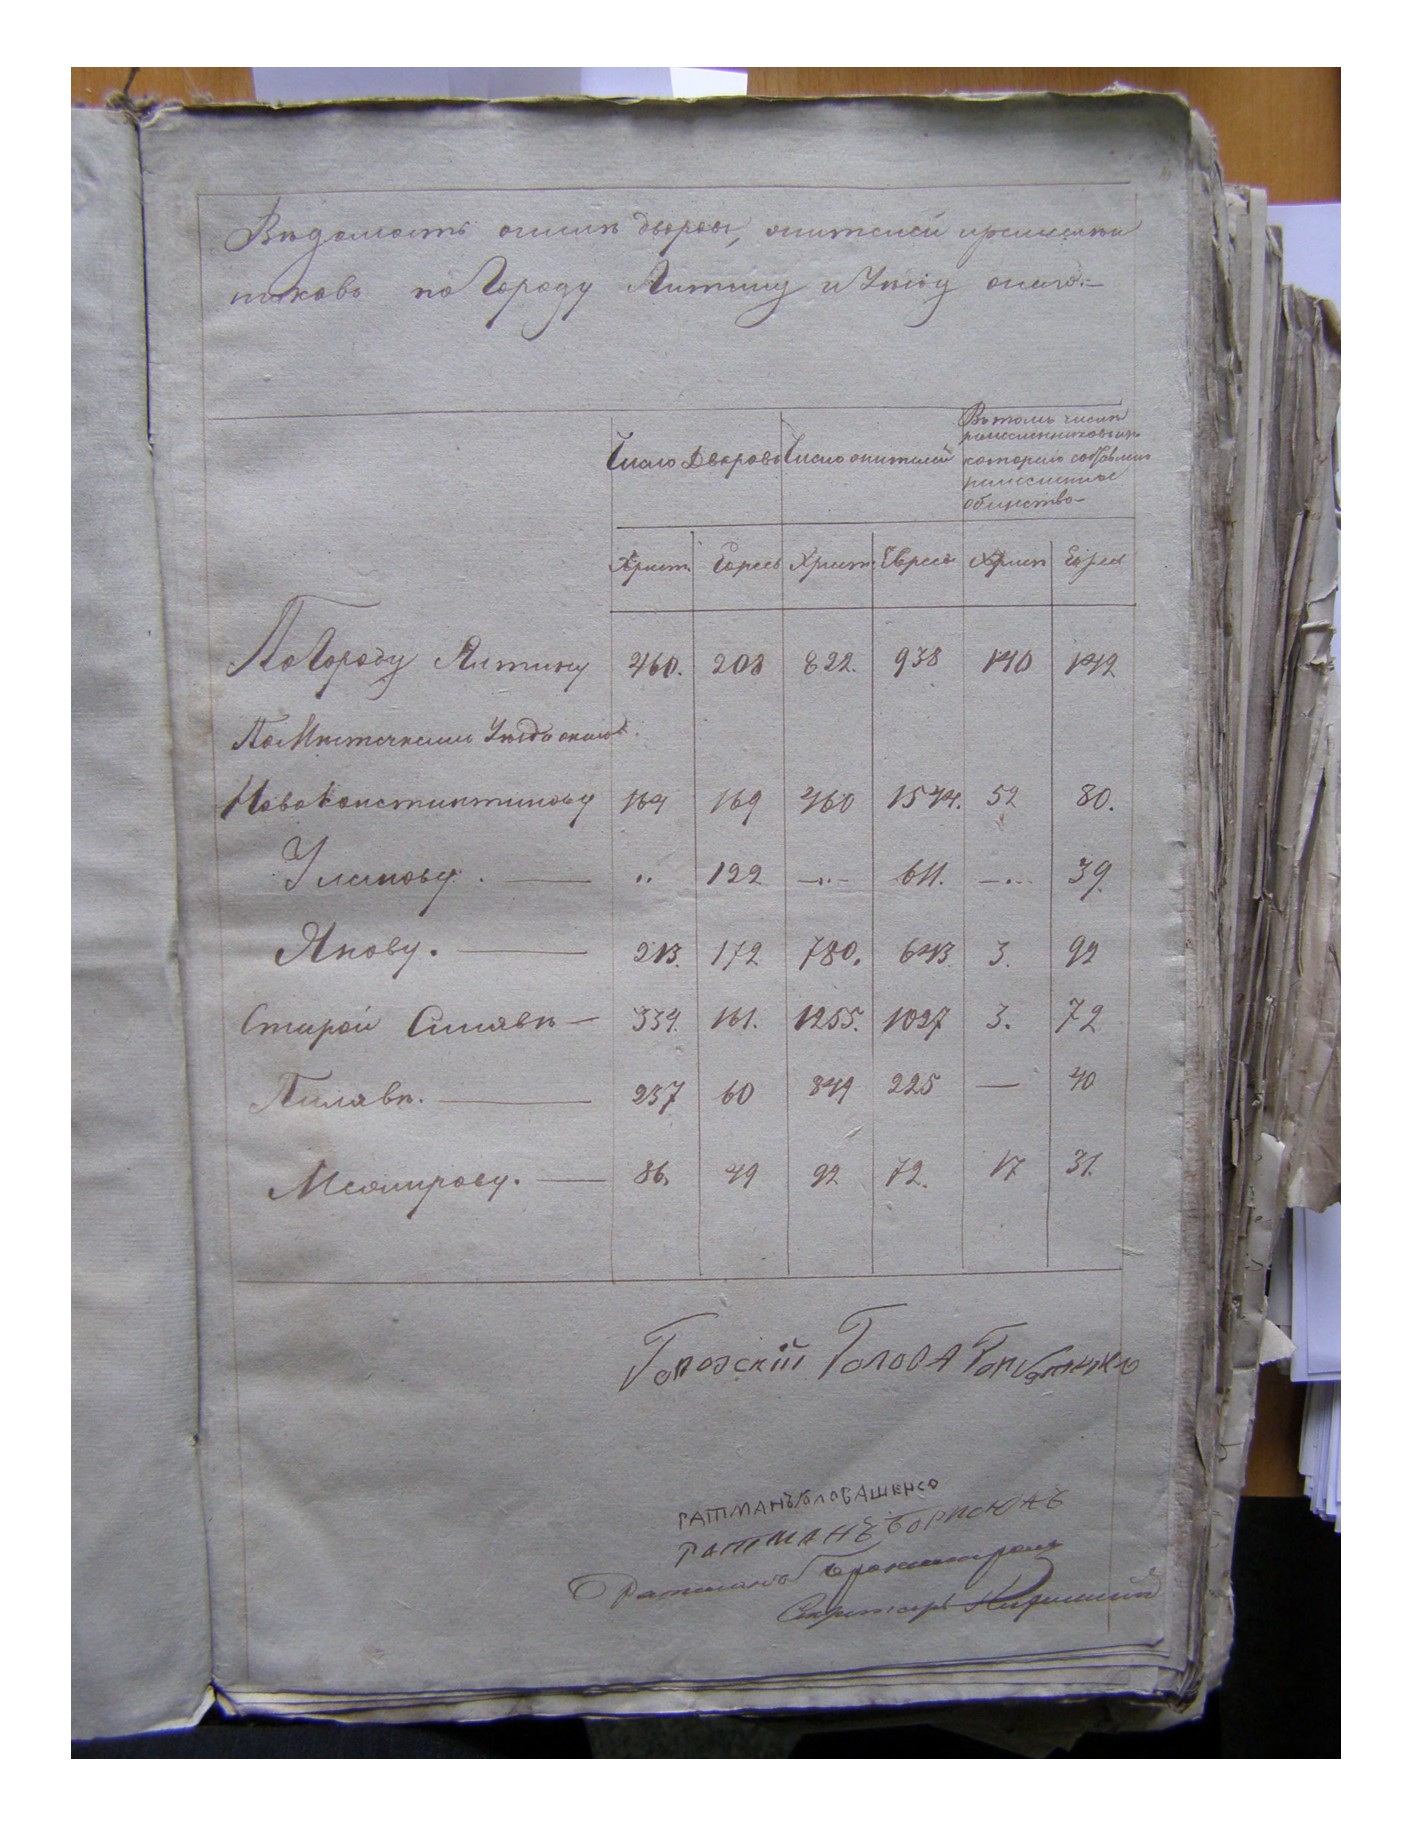 Ведомость о числе дворов, жителей и ремеслен
ников по Городу Литину и Уезду оного:—
Число Дворовъ Число жителей Въ томъ числе
ремесленниковъ из
которого составлено
ремесленное
общество—
Христ. Евреев Христ. Евреев Христ Еврее
По Городу Литину 460. 208 822. 938 140 142
По Местечкамъ Уезда оного.
Новоконстантинову 164 169 460 1544. 52 80.
Уланову. — „ 122 —„— 611. —„— 39.
Янову. — 213. 172 780. 643 3. 92
Старой Синяве — 339. 161. 1255. 1027 3. 72
Пиляве. — 237 60 849 225 — 40
Межирову. — 86. 49 92 72. 17 31.
Городскій Голова
РАТМАНЪ ГОЛОВАШЕНКО
РАТМАНЪ БОРИСЮКЪ
Ратманъ
Секретарь